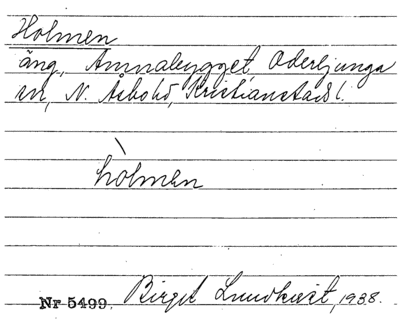 Holmen
äng, Ammabygget, Oderljunga
sn, N. Åsbohd, Kristianstads l.
hòlmen
Nr 5499. Birgit Lundkvist, 1938.